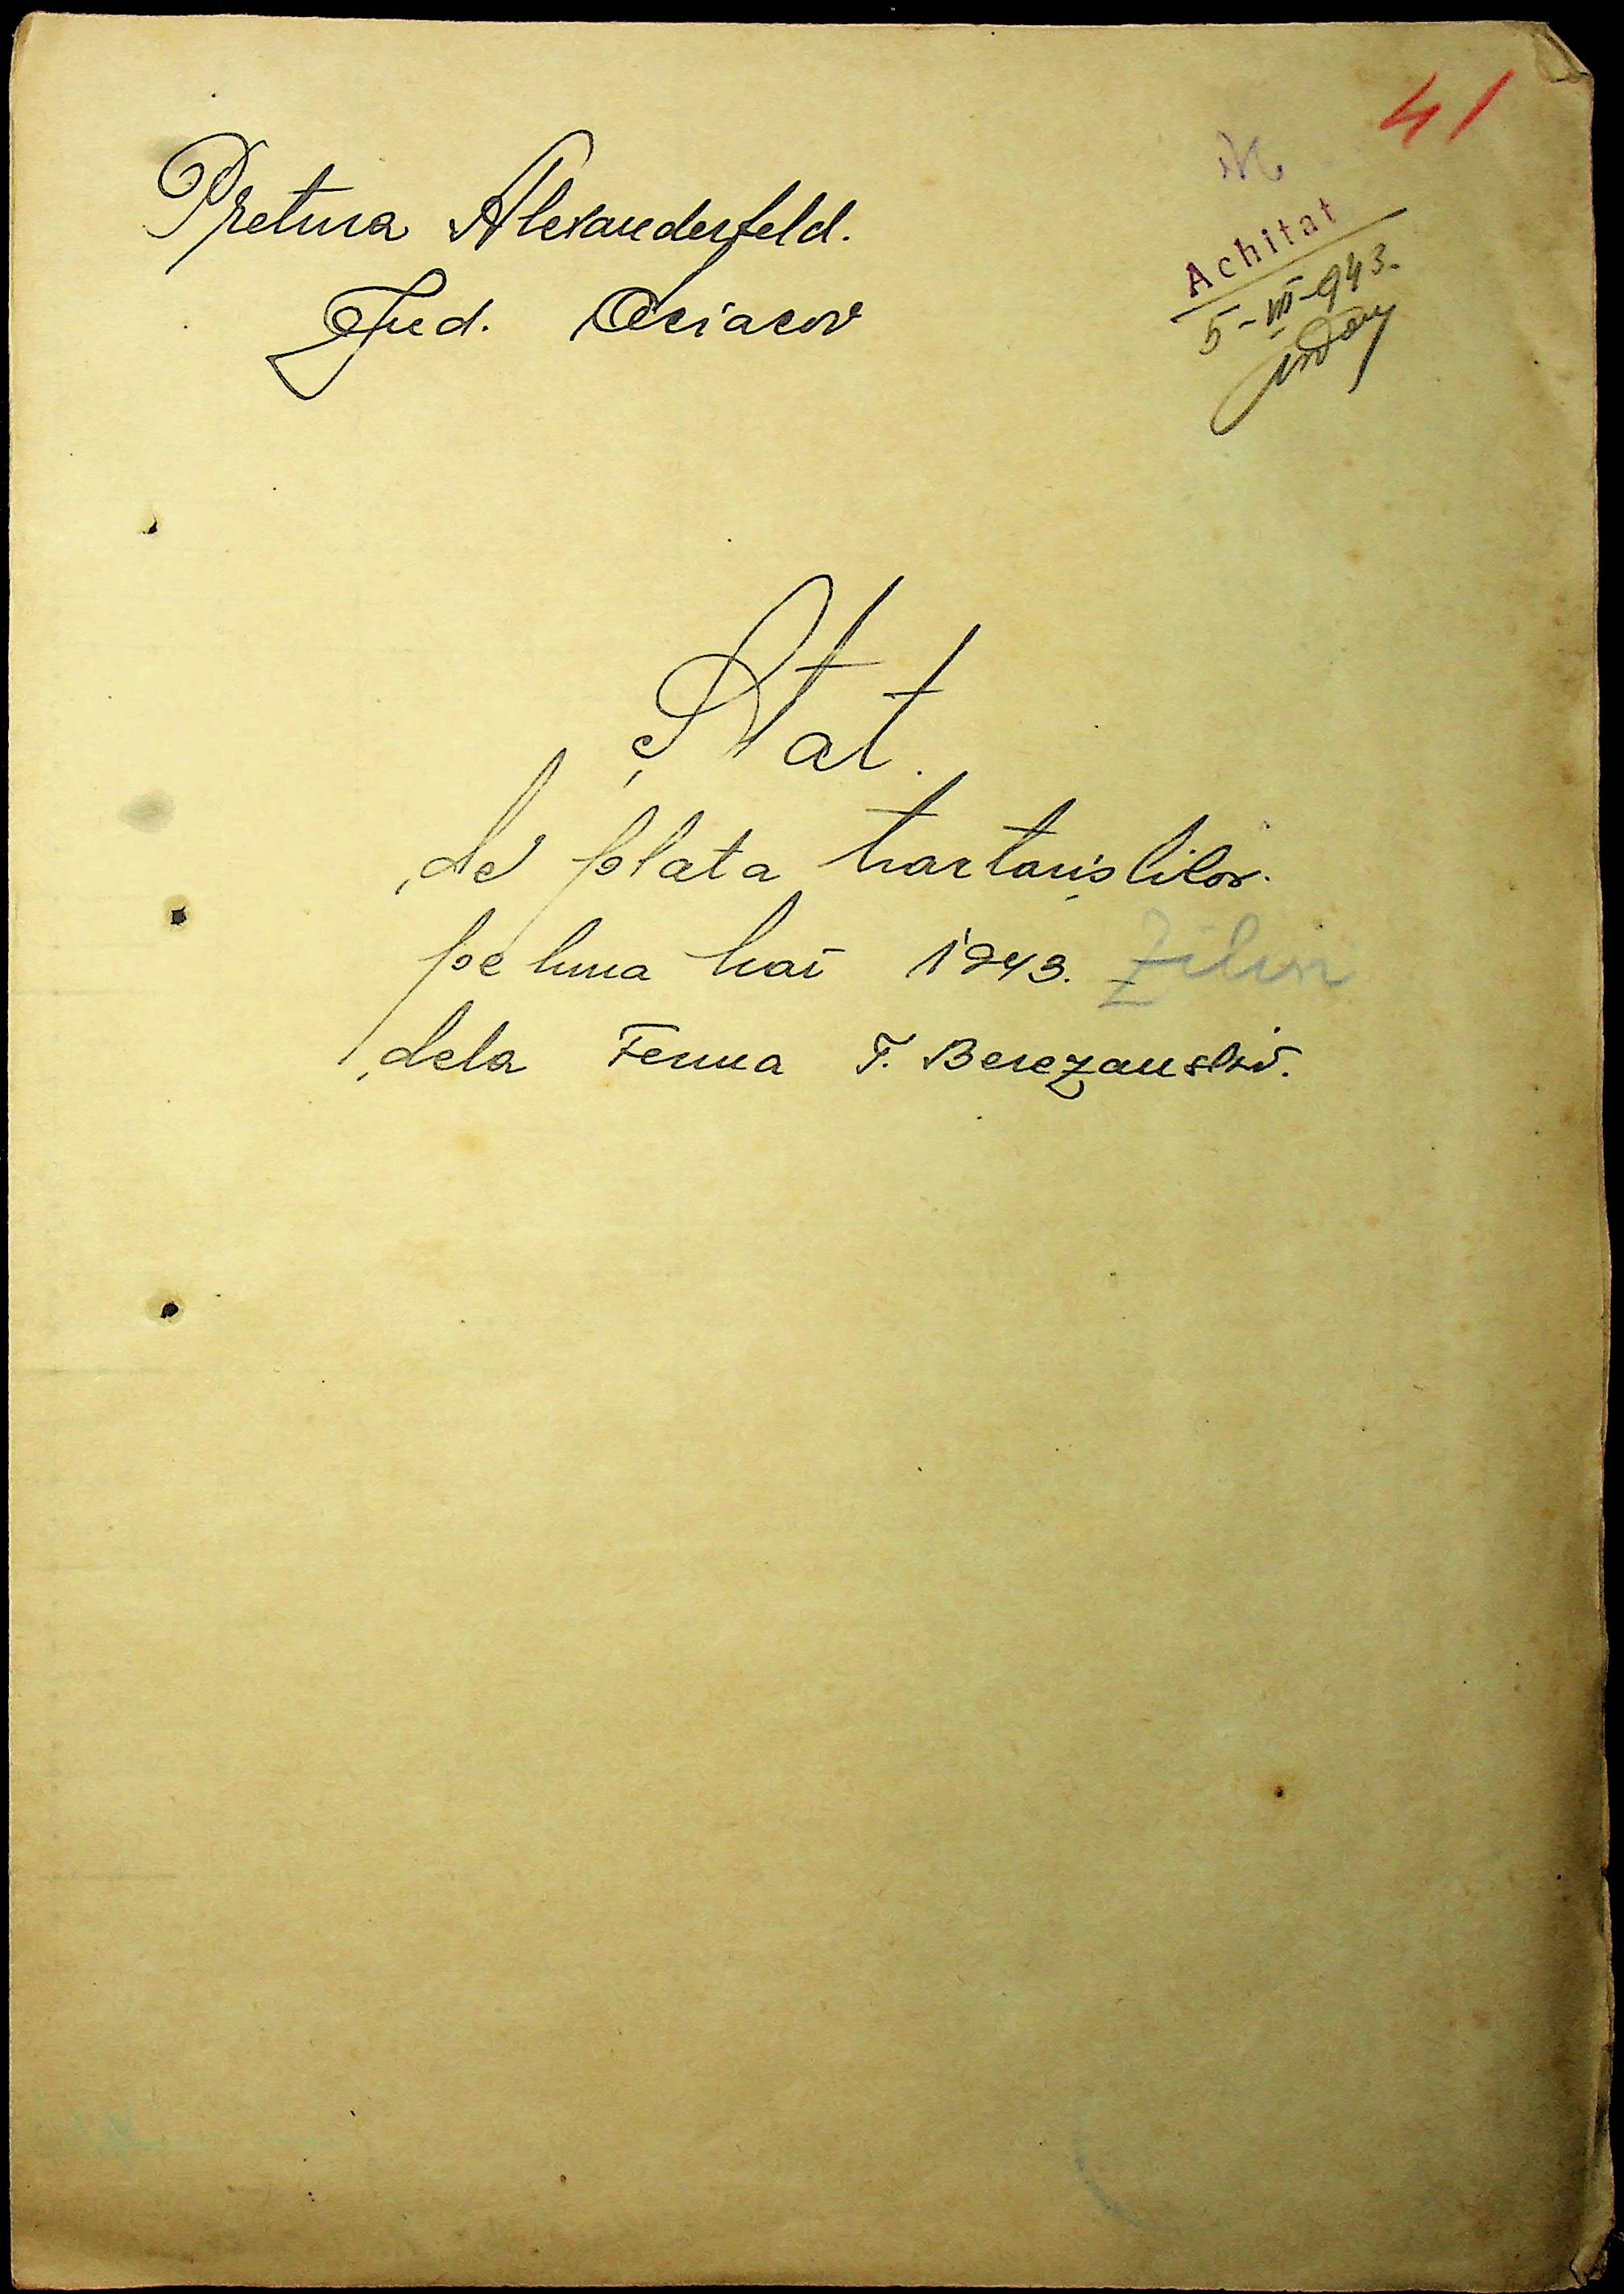 41
Pretura Alexanderfeld.
Jud. Oceacov
Achitat
5-VII-943.
Stat
de plata tractoriștilor
pe luna Mai 1943.
dela Ferma T. Berezanski.